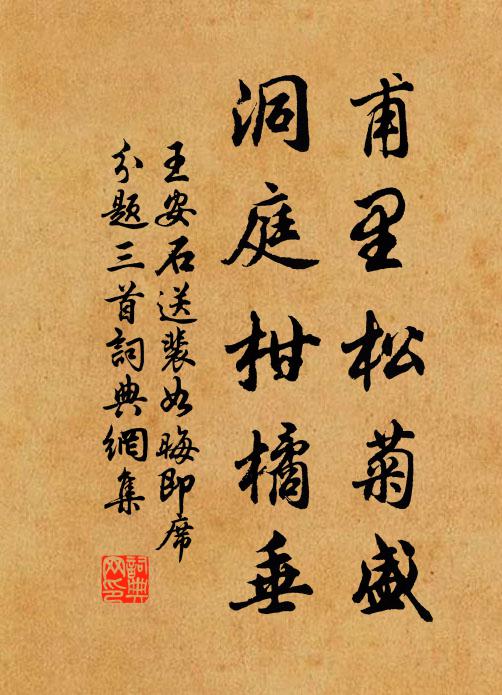 甫里松菊盛
洞庭柑橘垂
王安石送裴如晦即席
分题三首詞典網集
詞典
网印